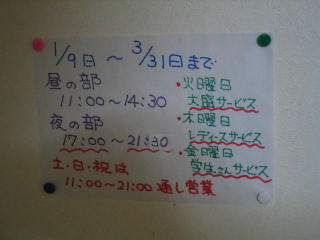 1/9日～3/31日まで
昼の部
11:00～14:30
夜の部
17:00～21:30
土・日・祝は
11:00～21:00 通し営業
・火曜日
大盛サービス
・木曜日
レディースサービス
・金曜日
学生さんサービス